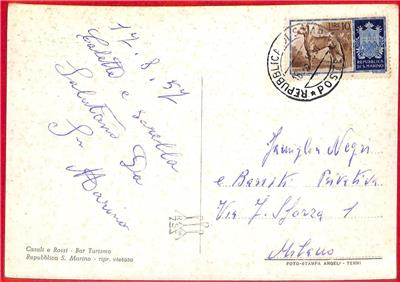 17.8.57
Colette e sorella
Salutano Da
S. Marino
LIRE 10
REPUBBLICA
DI S. MARINO
REPUBBLICA
POSTE
Famiglia Negri
e Baristi Privativa
Via F. Sforza 1
Milano
Casali e Rossi - Bar Turismo
Repubblica S. Marino - ripr. vietata
FOTO-STAMPA ANGELI - TERNI